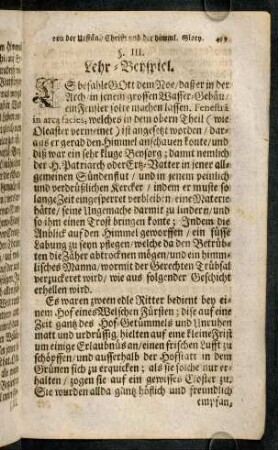 von der Urständ Christi und der himml. Glory. 
§. III.
Lehr-Beyspiel.
ES befahle GOtt dem Noe / daß er in der
Arch / an jenem grossen Wasser-Gebäu /
ein Fenster solte machen lassen. Fenestrã
in arca facies, welches in dem obern Theil (wie
Oleaster vermeinet) ist angesetzt worden / dar-
aus er gerad den Himmel anschauen konte / und
diß war ein sehr kluge Vorsorg; damit nemlich
der H. Patriarch oder Ertz-Vatter in jener allge-
meinen Sündenflut / und in jenem peinlich
und verdrüßlichen Kercker / indem er muste so
lange Zeit eingesperret verbleiben / eine Materie
hätte / seine Ungemache darmit zu lindern / und
so ihm einen Trost bringen konte; Indem das
Anblick auf den Himmel geworffen / ein süsse
Labung zu seyn pflegen / welche da den Betrüb-
ten die Zäher abtrocknen mögen / und ein himm-
lisches Manna / wormit der Gerechten Trübsal
verzuckeret wird / wie aus folgender Geschicht
erhellen wird.
Es waren zween edle Ritter bedient bey ei-
nem Hof eines Welschen Fürsten; dise auf eine
Zeit gantz des Hof-Getümmels und Unruhen
matt und urdrüssig / hielten auf eine kleine Frist
um einige Erlaubnus an / einen frischen Lufft zu
schöpffen / und ausserhalb der Hofstatt in dem
Grünen sich zu erquicken; als sie solche nur er-
halten / zogen sie auf ein gewisses Closter zu.
Sie wurden allda gantz höflich und freundlich
empfan,